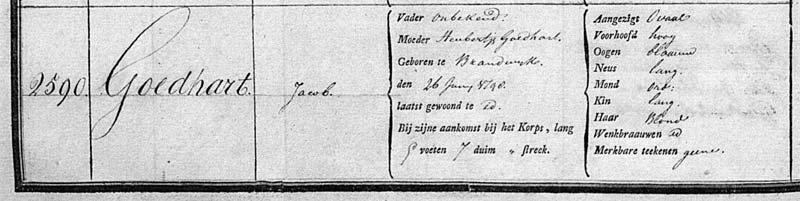 2590. Goedhart. Jacob.
Vader onbekend.
Moeder Huibertje Goedhart.
Geboren te Brandwyk.
den 26 Juny
laatst gewoond te id.
Bij zijne aankomst bij het Korps, lang
5 voeten 7 duim „ streek.
Aangezigt Ovaal
Voorhoofd hoog
Oogen blaauw
Neus lang.
Mond ord:
Kin lang.
Haar Blond
Wenkbraauwen id
Merkbare teekenen geene.